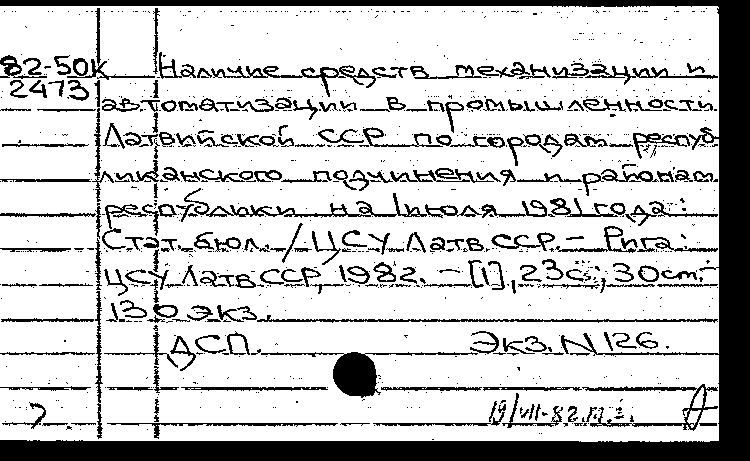 82-50К Наличие средств механизации и
2473 автоматизации в промышленности
Латвийской ССР по городам респуб-
ликанского подчинения и районам
республики на 1 июля 1981 года:
Стат. бюл. / ЦСУ Латв ССР. – Рига:
ЦСУ Латв ССР, 1982. – [1], 23 с.; 30 см. –
130 экз.
ДСП. Экз. N 126.
19/VII-82